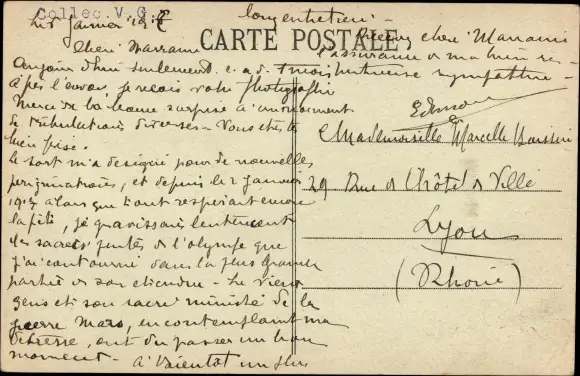 Collec. V. G.
CARTE POSTALE
Janvier
Chère Marraine
Aujourd'hui seulement c. a. d. 1 mois
après l'envoi, je reçois votre photographie
Merci de la bonne surprise à un moment
de tribulations diverses - Vous êtes
bien prise.
Le sort m'a désigné pour de nouvelles
pérégrinations, et depuis le 2 Janvier
1917 alors que tout respirait encore
la fête, je gravissais lentement
les sacrées pentes de l'olympe que
j'ai contourné dans la plus grande
partie de son étendue - Le vieux
Zeus et son sacré ministre de la
guerre Mars, en contemplant ma
détresse, ont dû passer un bon
moment - A bientôt un plus
long entretien -
Recevez chère Marraine
l'assurance de ma bien
respectueuse sympathie -
Mademoiselle Marcelle
29 Rue de l'Hôtel de Ville
Lyon
(Rhône)